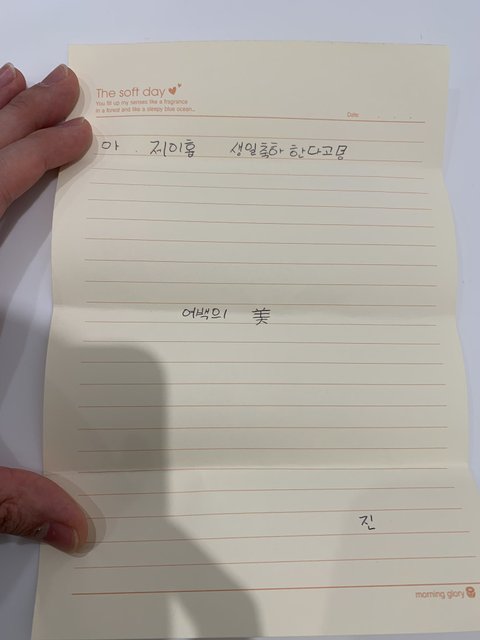 The soft day
You fill up my senses like a fragrance
in a forest and like a sleepy blue ocean...
Date . . .
아 제이홉 생일축하 한다고뭉
여백의 美
진
morning glory